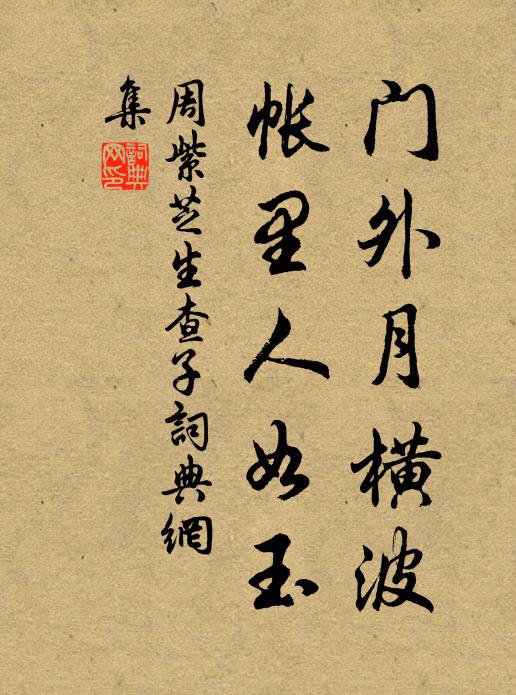 门外月横波
帐里人如玉
周紫芝生查子詞典網
集
詞典
网印